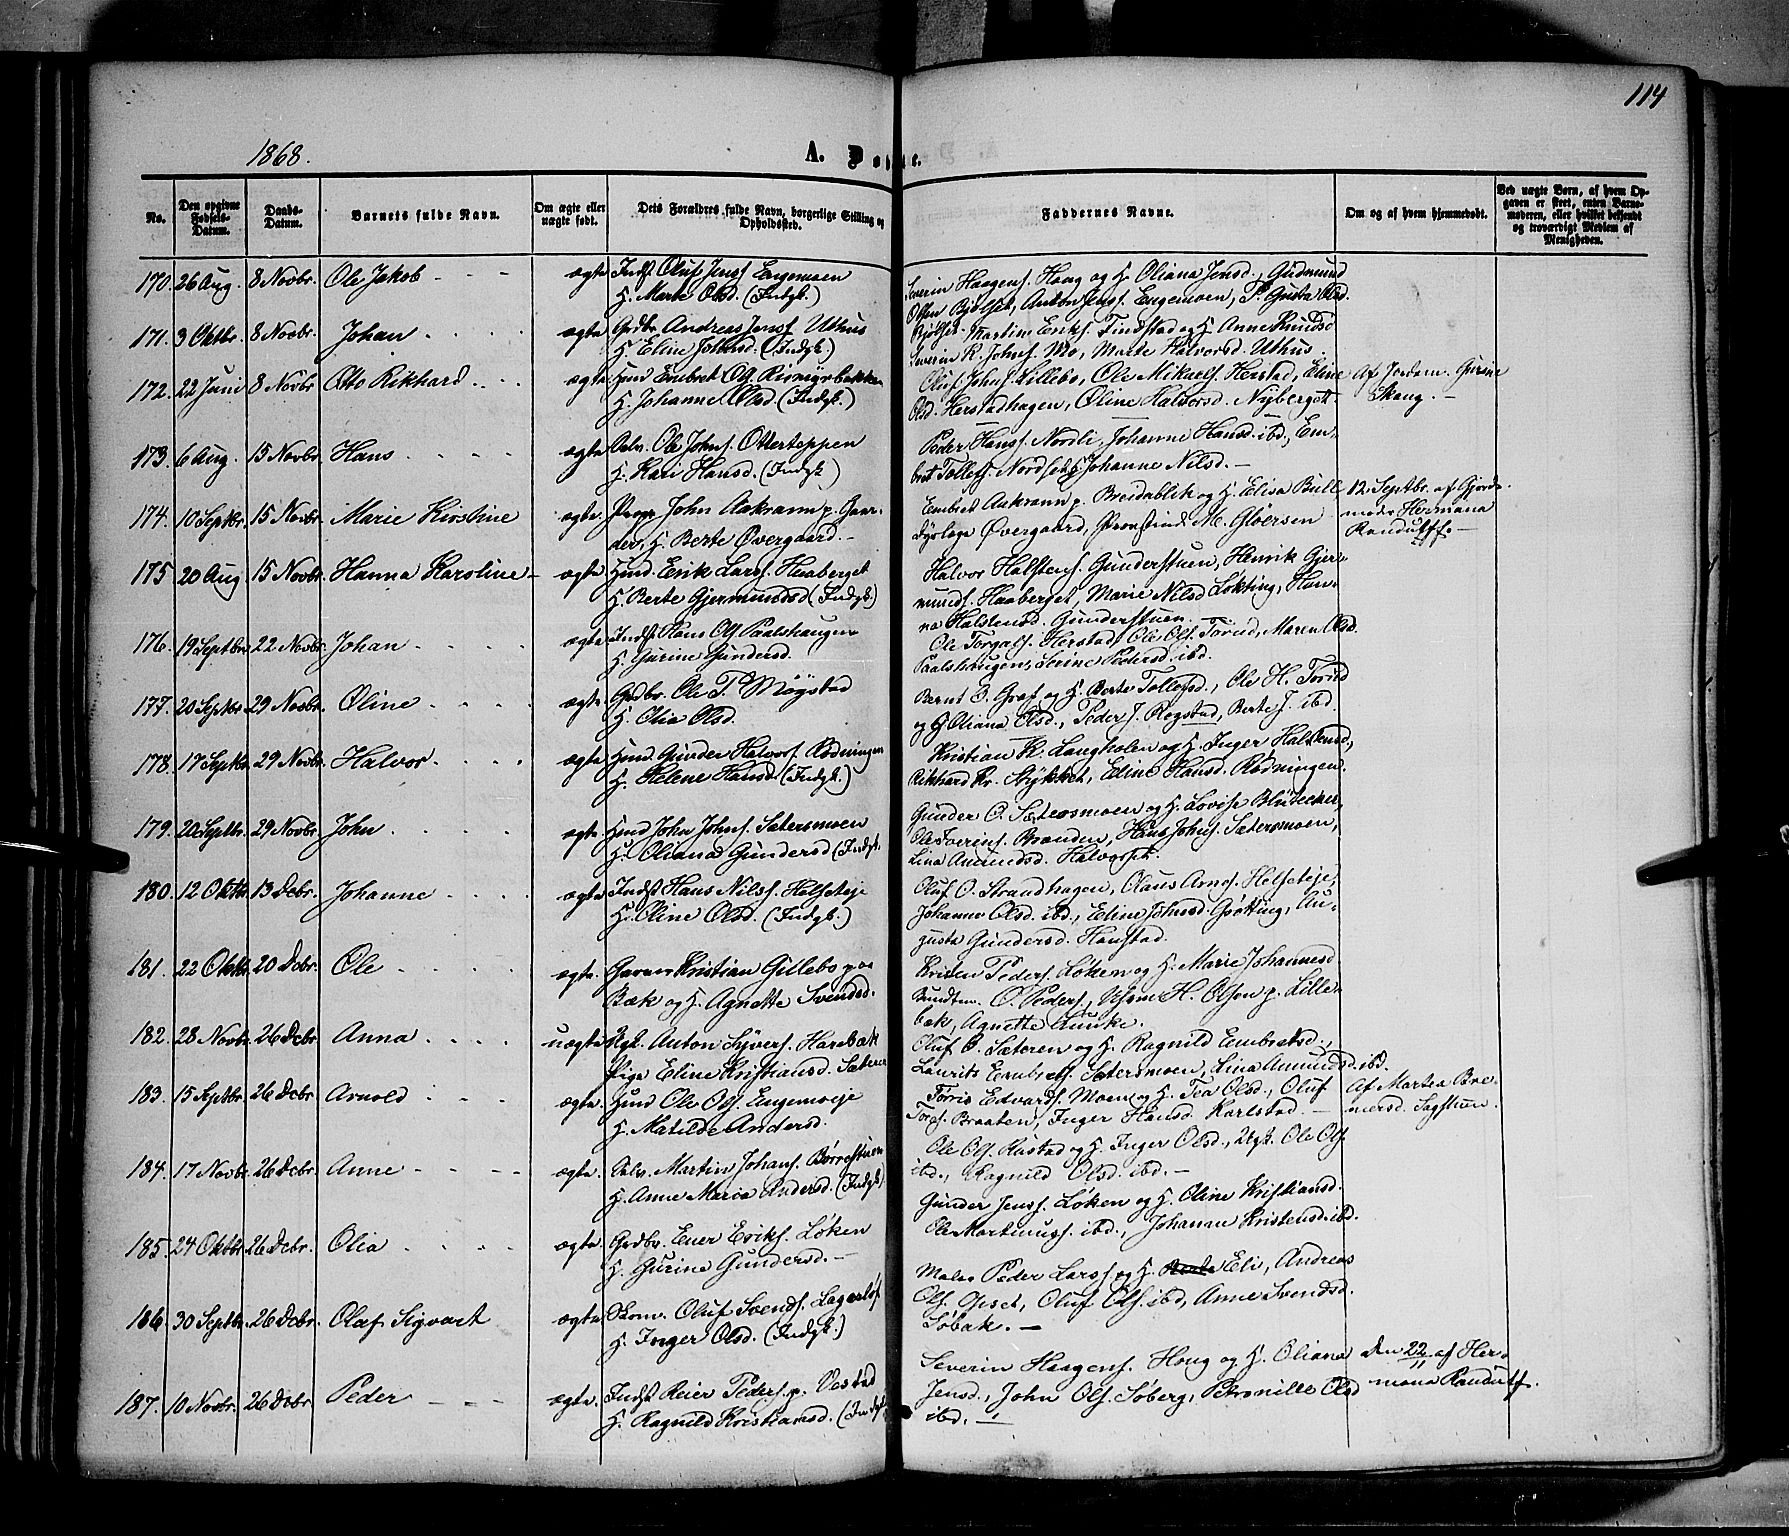 114
1868.
A. Døpte.
No.
Den opgivne Fødsels-Datum.
Daabs-Datum.
Barnets fulde Navn.
Om ægte eller uægte født.
Dets Forældres fulde Navn, borgerlige Stilling og Opholdssted.
Faddernes Navne.
Om og af hvem hjemmedøbt.
Ved uægte Børn, af hvem Opgaven er skeet, enten Barnemoderen, eller hvilket bekjendt og troværdigt Medlem af Menigheden.
170. 26 Aug. 8 Novbr. Ole Jakob - - - ægte Indst Oluf Jenss Engemoen
H. Marte Olsd. (Indgb.)
Severin Haagens. Haug og H. Oliana Jensd., Gudmund
Olsen Bjølset, Anton Jenss. Engemoen, P. Gusta Olsd.
Bjølset.
171. 3 Oktbr. 8 Novbr. Johan . . . . ægte Grdbr Andreas Jenss Uthus
H. Eline Johnsd. (Indgb.)
Martin Eriks. Findstad og H. Anne Knudsd
Severin K. Johns. Mo, Marte Halvorsd. Uthus.
172. 22 Juni 8 Novbr Otto Rikhard . . . ægte Huusd Embret Ols. Rismyrbakken
H. Johanne Olsd (Indgb.)
Oluf Johns. Lillebo, Ole Mikaels. Herstad, Eline
Olsd. Herstadhagen, Oline Halvorsd. Nyberget.
Af Jordem. Gurine
Skaug. -
173. 6 Aug. 15 Novbr. Hans . . . . ægte Selv. Ole Johns. Otterteppen
H. Kari Hansd. (Indgb)
Peder Hanss. Nordli, Johanne Hansd. ibd., Em-
bret Tollefs. Nordset, Johanne Nilsd. -
174. 10 Septbr. 15 Novbr. Marie Kirstine ægte. Prop John Aakrann p. Gaar-
der, H. Berte Øvergaard. -
Embret Aakrann p. Breidablik og H. Elisa Bull
Dyrlæge Øvergaard, Provstinde M. Gløersen
12 Septbr. af Gjorde-
moder Hermana
Randulff. -
175 20 Aug 15 Novbr. Hanna Karoline - ægte Huusd. Erik Larss. Haaberget
H. Berte Gjermundsd (Indgb.)
Halvor Halstens. Gunderstuen, Henrik Gjer-
munds. Haaberget, Marie Nilsd Løkting, Han-
na Halstensd. Gunderstuen. -
176. 19 Septbr. 22 Novbr. Johan . . . . ægte Indst Hans Ols. Paalshaugen
H. Gurine Gundersd.
Ole Torgals. Herstad, Ole Ols. Torud, Maren Olsd.
Paalshaugen, Serine Pedersd. ibd.
177. 20 Septbr. 29 Novbr. Oline . . . . ægte. Grdbr. Ole T. Møgstad
H. Olia Olsd.
Bernt O. Græs og H. Berte Tollefsd., Ole H. Torud
og H Oliana Olsd., Peder J. Rogstad, Berte J. ibd.
178. 17 Septbr 29 Novbr. Halvor. . . . ægte Huusd Gunder Halvors. Rødningen
H. Helene Hansd. (Indgb.)
Kristian K. Langholen og H. Inger Halstensd,
Rikhard Kr. Stykket, Eline Hansd. Rødningen.
179. 20 Septbr. 29 Novbr. John. . . . ægte Huusd John Johns. Sætersmoen
H. Oliana Gundersd (Indgb.
Gunder O. Sætersmoen og H. Lovise Blütecker,
Ole Severins. Braaden, Hans Johns. Sætersmoen,
Lina Amundsd. Halvorset.
180. 12 Oktbr. 13 Debr. Johanne . . . . ægte Indst Hans Nilss. Halseteje
H. Oline Olsd. (Indgb.)
Oluf O. Strandhagen, Olaus Arnes. Helseteje,
Johanne Olsd. ibd., Eline Johnsd. Grøtting, Au-
gusta Gundersd. Hanstad.
181. 22 Oktbr. 20 Debr. Ole . . . . ægte. Garver Kristian Gillebo paa
Bæk og H. Agnette Svendsd.
Kristen Peders. Løken og H. Marie Johannesd
Bundtm. O. Peders, H. Olsen p. Lille-
bæk, Agnette Funke.
182. 28 Novbr. 26 Debr. Anna . . . . uægte Ugk. Anton Syvers. Harebæk
Pige Eline Kristiansd. Sæteren
Oluf O. Sæteren og H. Ragnild Embretsd.,
Laurits Embrets. Sætersmoen, Lina Amundsd. ibd.
183. 15 Septbr. 26 Debr. Arnold . . . . ægte. Huusd Ole Ols. Engemoeje
H. Matilde Andersd.
Torris Edvards. Moen og H. Tea Olsd., Oluf
Torgs. Braaten, Inger Hansd. Karlstad. -
Af Martea Bre-
mersd. Sagstuen.
184. 17 Novbr. 26 Debr. Anne . . . . ægte. Selv. Martin Johans. Børrestuen
H. Anne Maria Andersd. (Indgb)
Ole Ols. Rustad og H. Inger Olsd., Ugk. Ole Ols.
ibd., Ragnild Olsd. ibd. -
185. 24 Oktbr. 26 Debr. Olia . . . . ægte. Grdbr. Ener Eriks. Løken
H. Gurine Gundersd. -
Gunder Jenss. Løken og H. Oline Kristiansd.
Ole Martinuss. ibd., Johanne Kristensd. ibd.
186. 30 Septbr. 26 Debr. Olaf Sigvart ægte. Skom. Oluf Svends. Lagerløf
H. Inger Olsd. (Indgb.)
Maler Peder Larss og H. Eli, Andreas
Ols. Opset, Oluf Ols. ibd, Anne Svendsd.
Søbak. -
187. 10 Novbr. 26 Debr. Peder - - - ægte. Indst Reier Peders. p. Vestad
H. Ragnild Kristiansd. (Indgb
Severin Haagens. Haug og H. Oliana
Jensd., John Ols. Søberg, Petronille Olsd
ibd. -
Den 22/11 af Her-
mana Randulff.